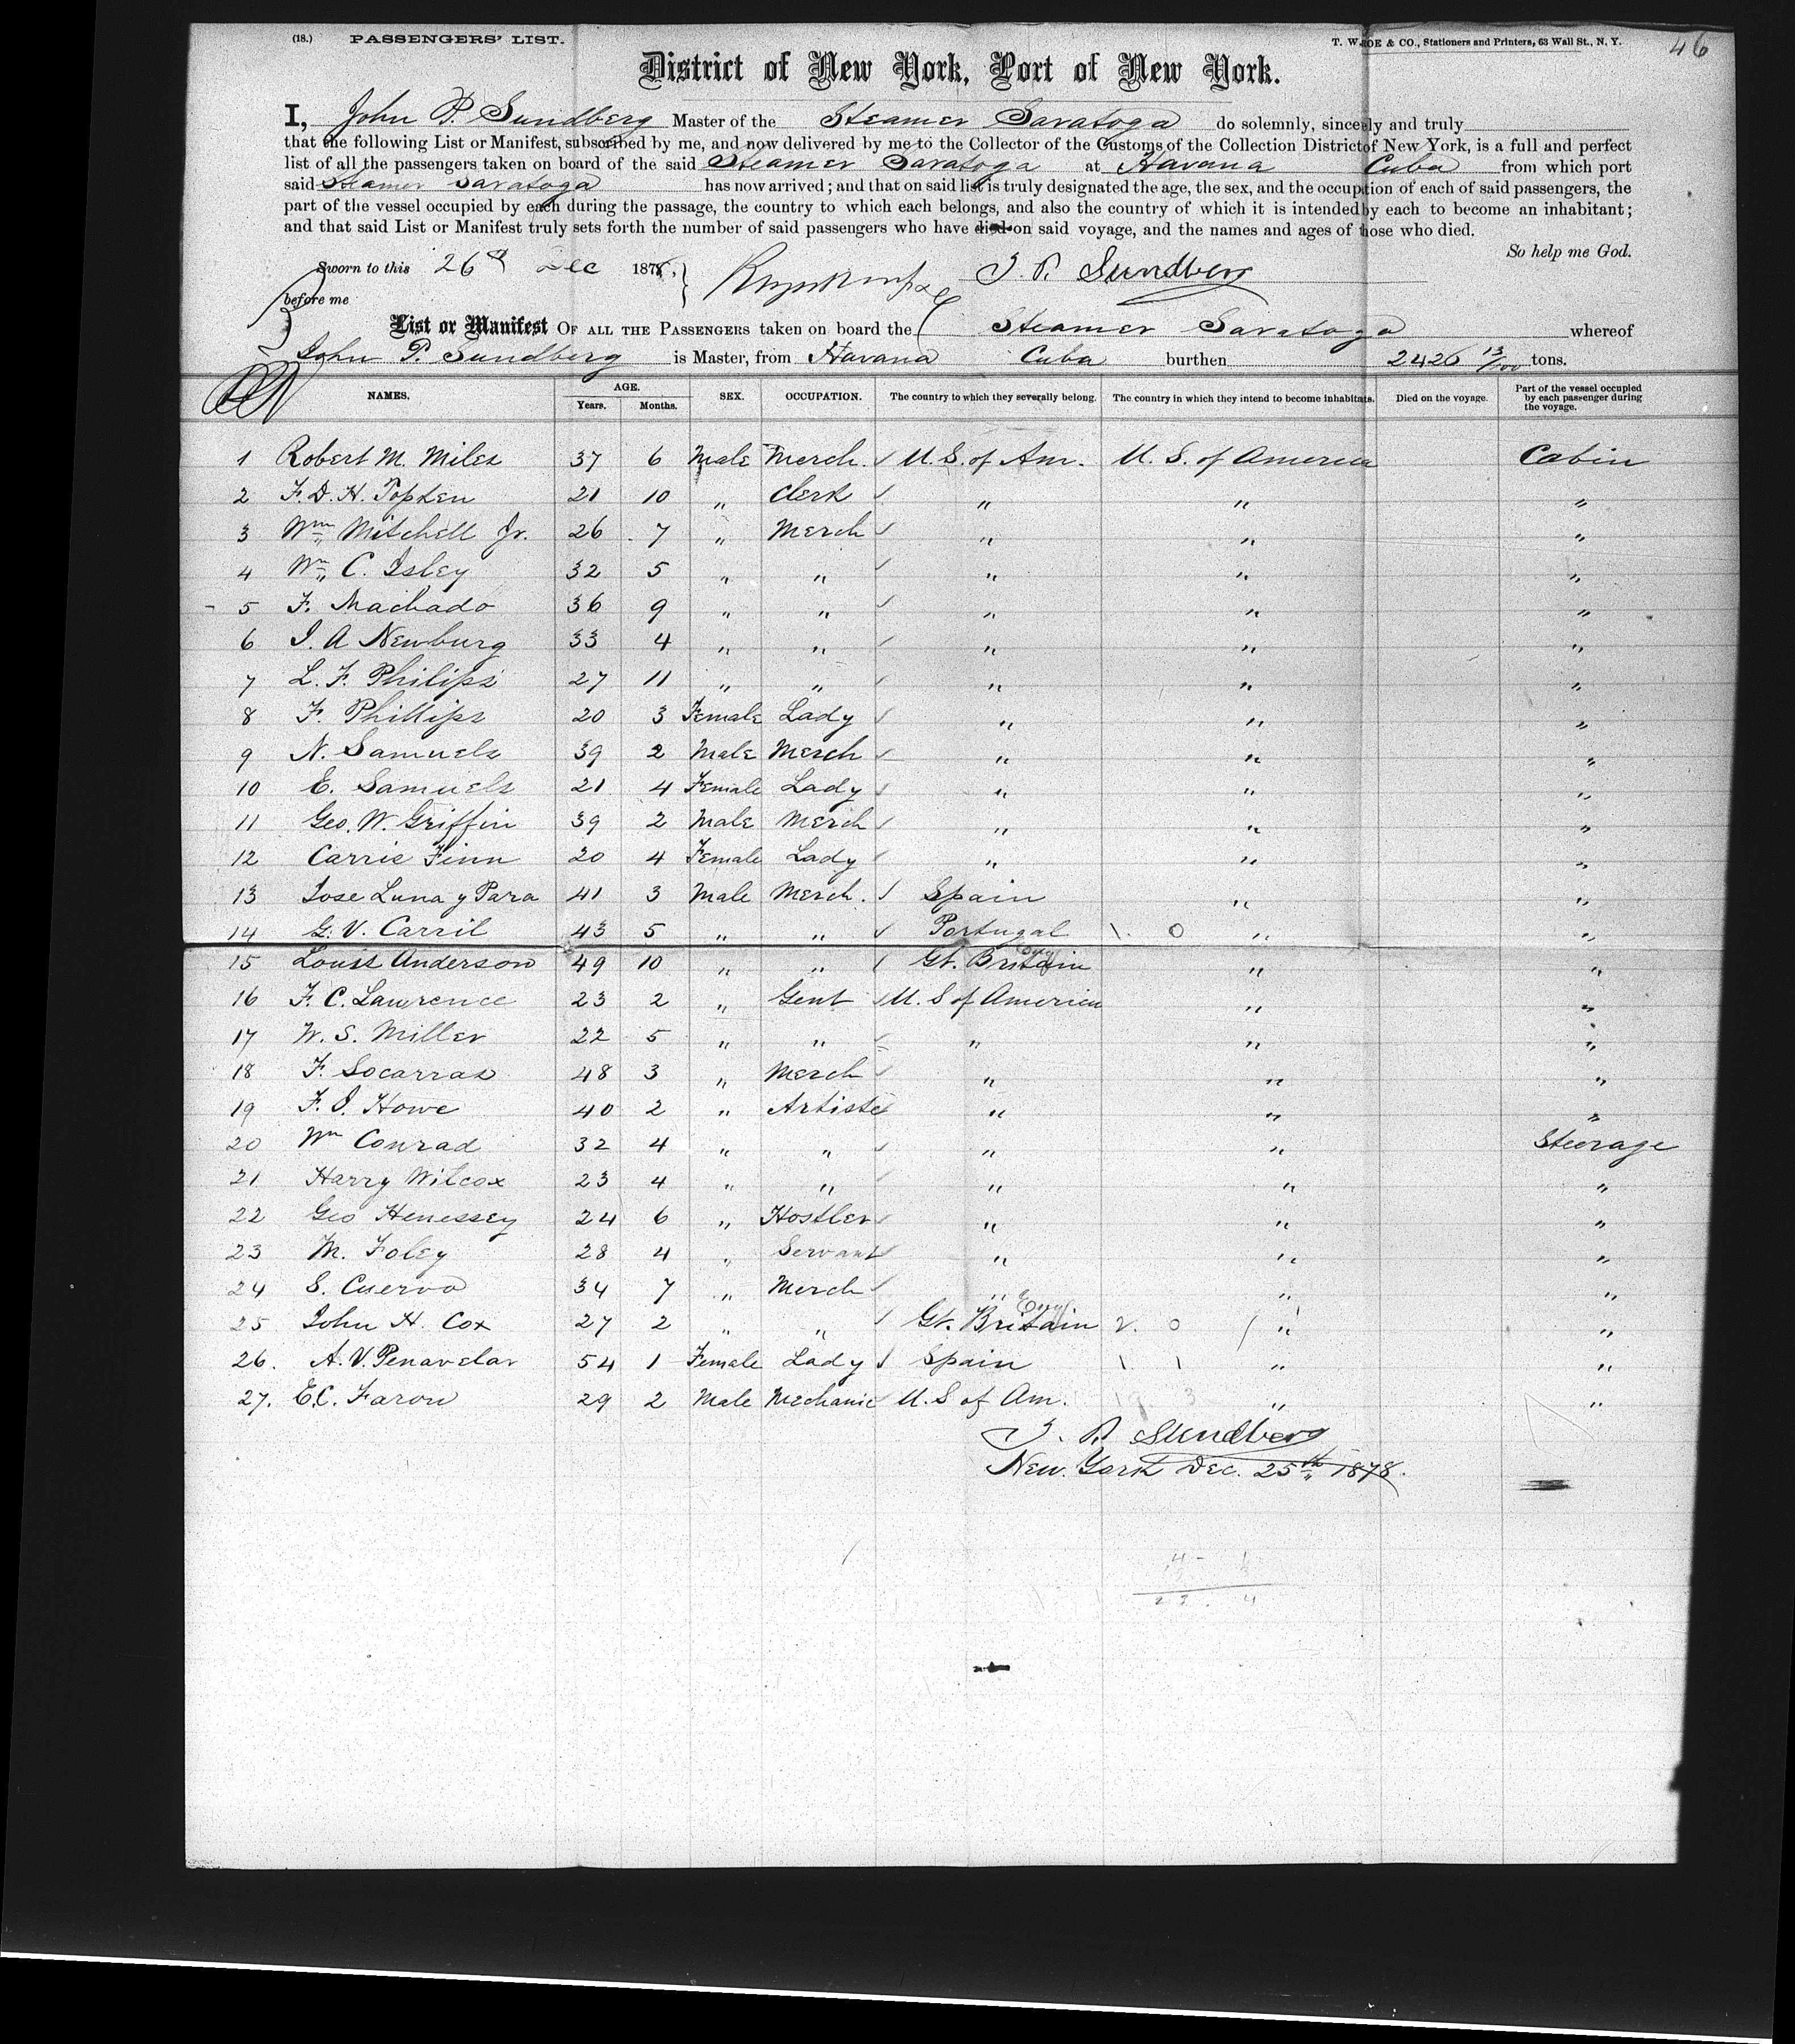 (18.) PASSENGERS' LIST. T. W. ROE & CO., Stationers and Printers, 63 Wall St., N. Y. 46
District of New York, Port of New York.
I, John P. Sundberg Master of the Steamer Saratoga do solemnly, sincerely and truly
that the following List or Manifest, subscribed by me, and now delivered by me to the Collector of the Customs of the Collection District of New York, is a full and perfect
list of all the passengers taken on board of the said Steamer Saratoga at Havana Cuba from which port
said Steamer Saratoga has now arrived; and that on said list is truly designated the age, the sex, and the occupation of each of said passengers, the
part of the vessel occupied by each during the passage, the country to which each belongs, and also the country of which it is intended by each to become an inhabitant;
and that said List or Manifest truly sets forth the number of said passengers who have died on said voyage, and the names and ages of those who died.
So help me God.
Sworn to this 26th Dec 1878, J. P. Sundberg
before me
List or Manifest OF ALL THE PASSENGERS taken on board the Steamer Saratoga whereof
John P. Sundberg is Master, from Havana Cuba burthen 2426 13/100 tons.
NAMES. AGE. Years. Months. SEX. OCCUPATION. The country to which they severally belong. The country in which they intend to become inhabitants. Died on the voyage. Part of the vessel occupied by each passenger during the voyage.
1 Robert M. Miles 37 6 Male Merch. ✓ U.S. of Am. U. S. of America Cabin
2 F. D. H. Topken 21 10 " Clerk ✓ " " "
3 Wm Mitchell Jr. 26 7 " Merch ✓ " " "
4 Wm C. Isley 32 5 " " ✓ " " "
5 F. Machado 36 9 " " ✓ " " "
6 I. A Newburg 33 4 " " ✓ " " "
7 L. F. Philips 27 11 " " ✓ " " "
8 F. Phillips 20 3 Female Lady ✓ " " "
9 N. Samuels 39 2 Male Merch ✓ " " "
10 E. Samuels 21 4 Female Lady ✓ " " "
11 Geo. W. Griffin 39 2 Male Merch ✓ " " "
12 Carrie Finn 20 4 Female Lady ✓ " " "
13 Jose Luna y Para 41 3 Male Merch. ✓ Spain " "
14 G. V. Carril 43 5 " " ✓ Portugal 1. 0 " "
15 Louis Anderson 49 10 " " Gt. Britain " "
16 F. C. Lawrence 23 2 " Gent ✓ U. S of America " "
17 W. S. Miller 22 5 " " ✓ " " "
18 F. Socarras 48 3 " Merch ✓ " " "
19 F. J. Howe 40 2 " Artiste " " "
20 Wm Conrad 32 4 " " ✓ " " Steerage
21 Harry Wilcox 23 4 " " " " "
22 Geo Henessey 24 6 " Hostler ✓ " " "
23 M. Foley 28 4 " Servant ✓ " " "
24 S. Cuervo 34 7 " Merch ✓ " " "
25 John H. Cox 27 2 " " ✓ Gt. Britain 2. 0 / " "
26. A. V. Penavelar 54 1 Female Lady ✓ Spain 1 1 " "
27. E.C. Faron 29 2 Male Mechanic U. S of Am. " "
J. P. Sundberg
New York Dec. 25th 1878.